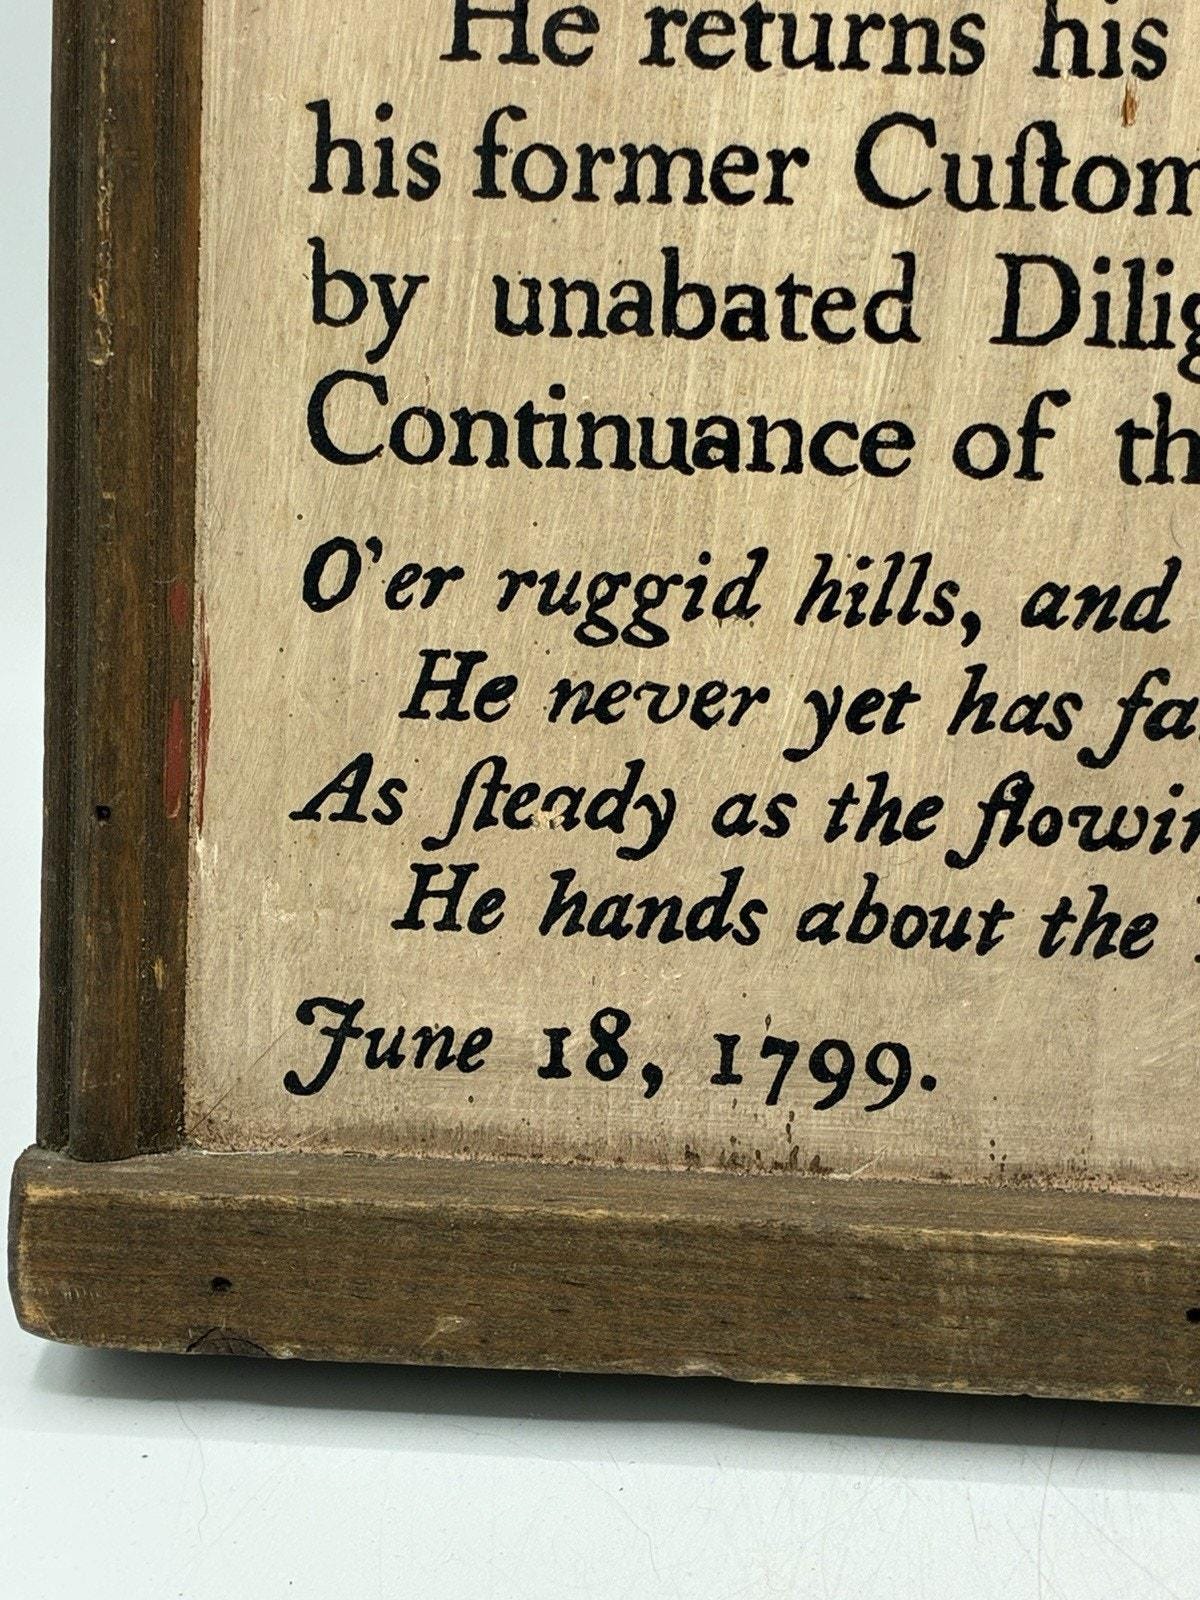 He returns his
his former Cuſtom
by unabated Dilig
Continuance of th
O'er ruggid hills, and
He never yet has fa
As ſteady as the flowin
He hands about the
June 18, 1799.